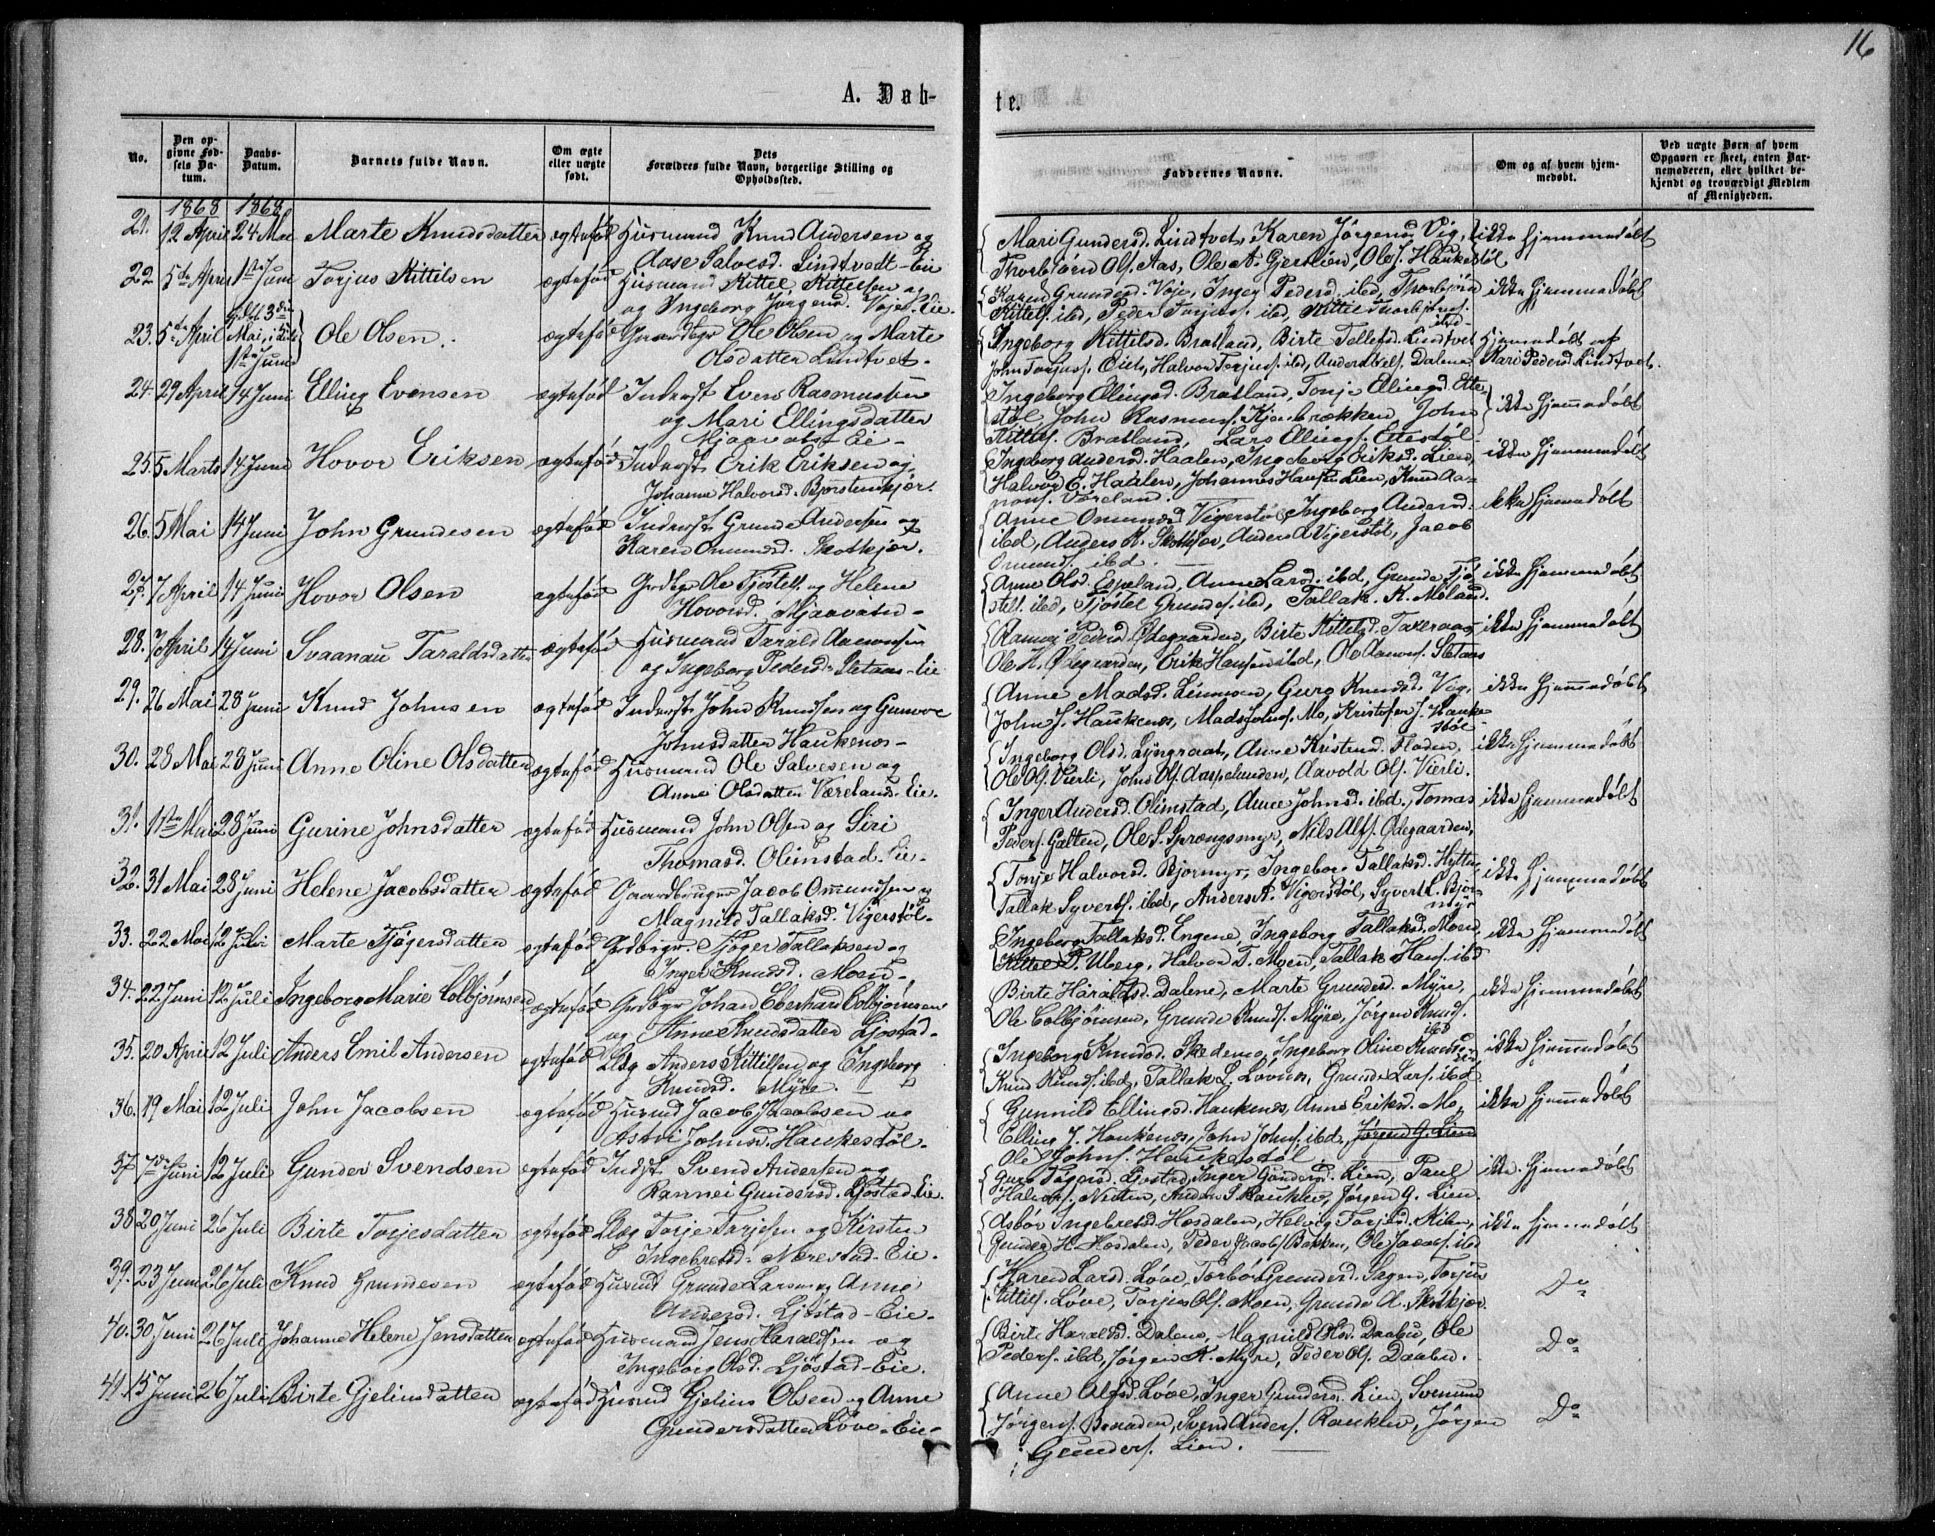 16
A. Døb-
te.
No.
Den op-
givne Fød-
sels Da-
tum.
Daabs-
Datum.
Barnets fulde Navn.
Om ægte
eller uægte
født.
Dets
Forældres fulde Navn, borgerlige Stilling og
Opholdssted.
Faddernes Navne.
Om og af hvem hjem-
medøbt.
Ved uægte Børn af hvem
Opgaven er skeet, enten Bar-
nemoderen, eller hvilket be-
kjendt og troværdigt Medlem
af Menigheden.
1868 1868
21. 12 April 24 Mai Marte Knudsdatter ægtefød Husmand Knud Andersen og
Aase Salvesd. Lindtvedt-Eie
Mari Gundersd. Lindtvet, Karen Jørgensd Vig, ikke hjemmedøbt
Thorbjørn Ols. Aas, Ole A. Gjerslien, Ole J. Haukestøl
22 5te April 1ste Juni Torjus Kittilsen ægtefød Husmand Kittel Kittelsen og
og Ingeborg Jørgensd. Voje-Eie.
Karen Grundesd. Voje, Inger Pedersd. ibd, Thorbjørn ikke hjemmedøbt
Kittels. ibd, Peder Torjuss. ibd, Kittel Thorbjørns.
ibd
23. 5te April Mai, i Kirke 1ste Juni Ole Olsen. ægtefød Gaardbgr Ole Olsen og Marte
Olsdatter Lindtvet.
Ingeborg Kittilsd. Bratland, Birte Tellefsd. Lindtvet Hjemmedøbt af
John Torjuss. Eie, Halvor Torjuss. ibd, Anders Dalene Mari Pedersd. Lindtvet.
24. 29 April 14 Juni Elling Evensen ægtefød Inderst Even Rasmussen
og Mari Ellingsdatter
Mjaavatn Eie-
Ingeborg Ellingsd. Bratland, Tonje Ellingsd. Ette-
støl John Rasmuss. Kjenbrækken, John ikke hjemmedøbt
Kittels. Bratland, Lars Ellings. Ettestøl-
25. 5 Marts 14 Juni Hovor Eriksen ægtefød Inderst Erik Eriksen og
Johanne Halvorsd. Bjørstenkjær.
Ingeborg Andersd. Haalen, Ingeborg Eriksd. Lien, ikke hjemmedøbt
Halvor E. Haalen, Johannes Hansen Lien, Knud Aa-
nons. Væreland.
26. 5 Mai 14 Juni John Grundesen ægtefød Inderst Grunde Andersen og
Karen Omundsd. Skotkjær.
Anne Omundsd. Vigerstøl, Ingeborg Andersd. ikke hjemmedøbt
ibd, Anders K. Skotkjær, Anders A. Vigerstøl, Jacob
Omunds. ibd.
27. 7 April 14 Juni Hovor Olsen ægtefød Grdbgr Ole Tjøstels. og Helene
Hovorsd. Mjaavatn-
Anne Olsd. Espeland, Anne Larsd. ibd, Grunde Tjø- ikke hjemmedøbt
stels. ibd, Tjøstel Grundes. ibd, Tallak K. Moland.
28. 7 April 14 Juni Svaanau Taraldsdatter ægtefød Husmand Tarald Aanonsen
og Ingeborg Pedersd. Sletaas-Eie
Rannei Pedersd Ødegaarden, Birte Kittelsd. Taxeraas, ikke hjemmedøbt
Ole K. Ødegaarden, Erik Hansen ibd, Ole Aanons. Sletaas
29. 26 Mai 28 Juni Knud Johnsen ægtefød Inderst John Knudsen og Gunvor
Johnsdatter Haukenes-
Anne Madsd. Linmoen, Guro Knudsd. Vig, ikke hjemmedøbt
John J. Haukenes, Mads Johns. Mo, Kristofer J. Hauke-
støl
30. 28 Mai 28 Juni Anne Oline Olsdatter ægtefød Husmand Ole Salvesen og
Anne Olsdatter Væreland-Eie.
Ingeborg Olsd. Lyngroat, Anne Kristensd. Floden, ikke hjemmedøbt
Ole Ols. Vierli, John Ols. Aaspelunden, Aavold Ols. Vierli.
31. 1ste Mai 28 Juni Gurine Johnsdatter ægtefød Husmand John Olsen og Siri
Thomasd. Olimstad-Eie-
Inger Andersd. Olimstad, Anne Johnsd. ibd., Tomas ikke hjemmedøbt
Peders. Galten, Ole S. Sprængsmyr, Nils Alfs. Ødegaarden,
32. 31 Mai 28 Juni Helene Jacobsdatter ægtefød Gaardbrugr Jacob Omundsen og
Magnild Tallaksd. Vigerstøl-
Tonje Halvorsd. Bjormyr, Ingeborg Tallaksd. Hytten, ikke hjemmedøbt
Tallak Syverts. ibd, Anders A. Vigerstøl, Syvert L. Bjor-
myr
33. 22 Mai 12 Juli Marte Tjøgersdatter ægtefød Grdbrgr. Tjøger Tallaksen og
Inger Knudsd. Moen-
Ingeborg Tallaksd. Engene, Ingeborg Tallaksd. Moen, ikke hjemmedøbt
Kittel P. Uberg, Halvor T. Moen, Tallak Hans. ibd
34. 22 Juni 12 Juli Ingeborg Marie Colbjørnsen ægtefød Grdbgr Johan Eberhard Colbjørnsen
og Anne Knudsdatter Ljøstad-
Birte Haraldsd. Dalene, Marte Grundesd. Myre, ikke hjemmedøbt
Ole Colbjørnsen, Grunde Knuds. Myre, Jørgen Knuds.
ibd
35. 20 April 12 Juli Anders Emil Andersen ægtefød Llsg Anders Kittilsen og Ingeborg
Knudsd. Myre
Ingeborg Knudsd. Skedemo, Ingeborg Oline Knudsd. ikke hjemmedøbt
Knud Knuds. ibd, Tallak L. Løvnes, Grunde Lars. ibd
36. 19 Mai 12 Juli John Jacobsen ægtefød Husmd Jacob Jacobsen og
Astri Johnsd. Haukestøl-
Gunnild Ellingsd. Haukenes, Anne Eriksd. Mo, ikke hjemmedøbt
Elling J. Haukenes, John Johns. ibd, Jørgen G. Lien
Ole Johns. Haukestøl
37 7de Juni 12 Juli Gunder Svendsen ægtefød Indst Svend Andersen og
Rannei Gundersd. Ljøstad-Eie
Guro Tøgersd. Ljøstad, Inger Gundersd. Lien, Paul ikke hjemmedøbt
Halvors. Nuten, Anders S. Rauklev, Jørgen G. Lien.
38 20 Juni 26 Juli Birte Torjesdatter ægtefød Llsg Torje Torjesen og Kirsten
Ingebretsd. Nærestad-Eie.
Asbør Ingebretsd Hosdalen, Helvig Torjesd. Kilen, ikke hjemmedøbt
Gunder H. Hosdalen, Peder Jacobs. Bakken, Ole Jacobs. ibd
39. 23 Juni 26 Juli Knud Grundesen ægtefød Husmd Grunde Larsen og Anne
Andersd. Ljøstad-Eie-
Karen Larsd. Løve, Torbør Grundesd. Sagen, Torjus Do
Kittils. Løve, Torjus Ols. Moen, Grunde A. Skotkjær
40. 30 Juni 26 Juli Johanne Helene Jensdatter ægtefød Husmand Jens Haraldsen og
Ingeborg Olsd. Ljøstad-Eie.
Birte Haraldsd. Dalene, Magnild Olsd. Daabu, Ole Do
Peders. ibd, Jørgen K. Myre, Peder Ols. Daabu.
41. 15 Juni 26 Juli Birte Gjeliusdatter ægtefød Husmd Gjelius Olsen og Anne
Gundersdatter Løve-Eie-
Anne Alfsd. Løve, Inger Gundersd. Lien, Svenum
Jørgens. Bernaden, Svend Anders. Rauklev, Jørgen Do
Gunders. Lien.